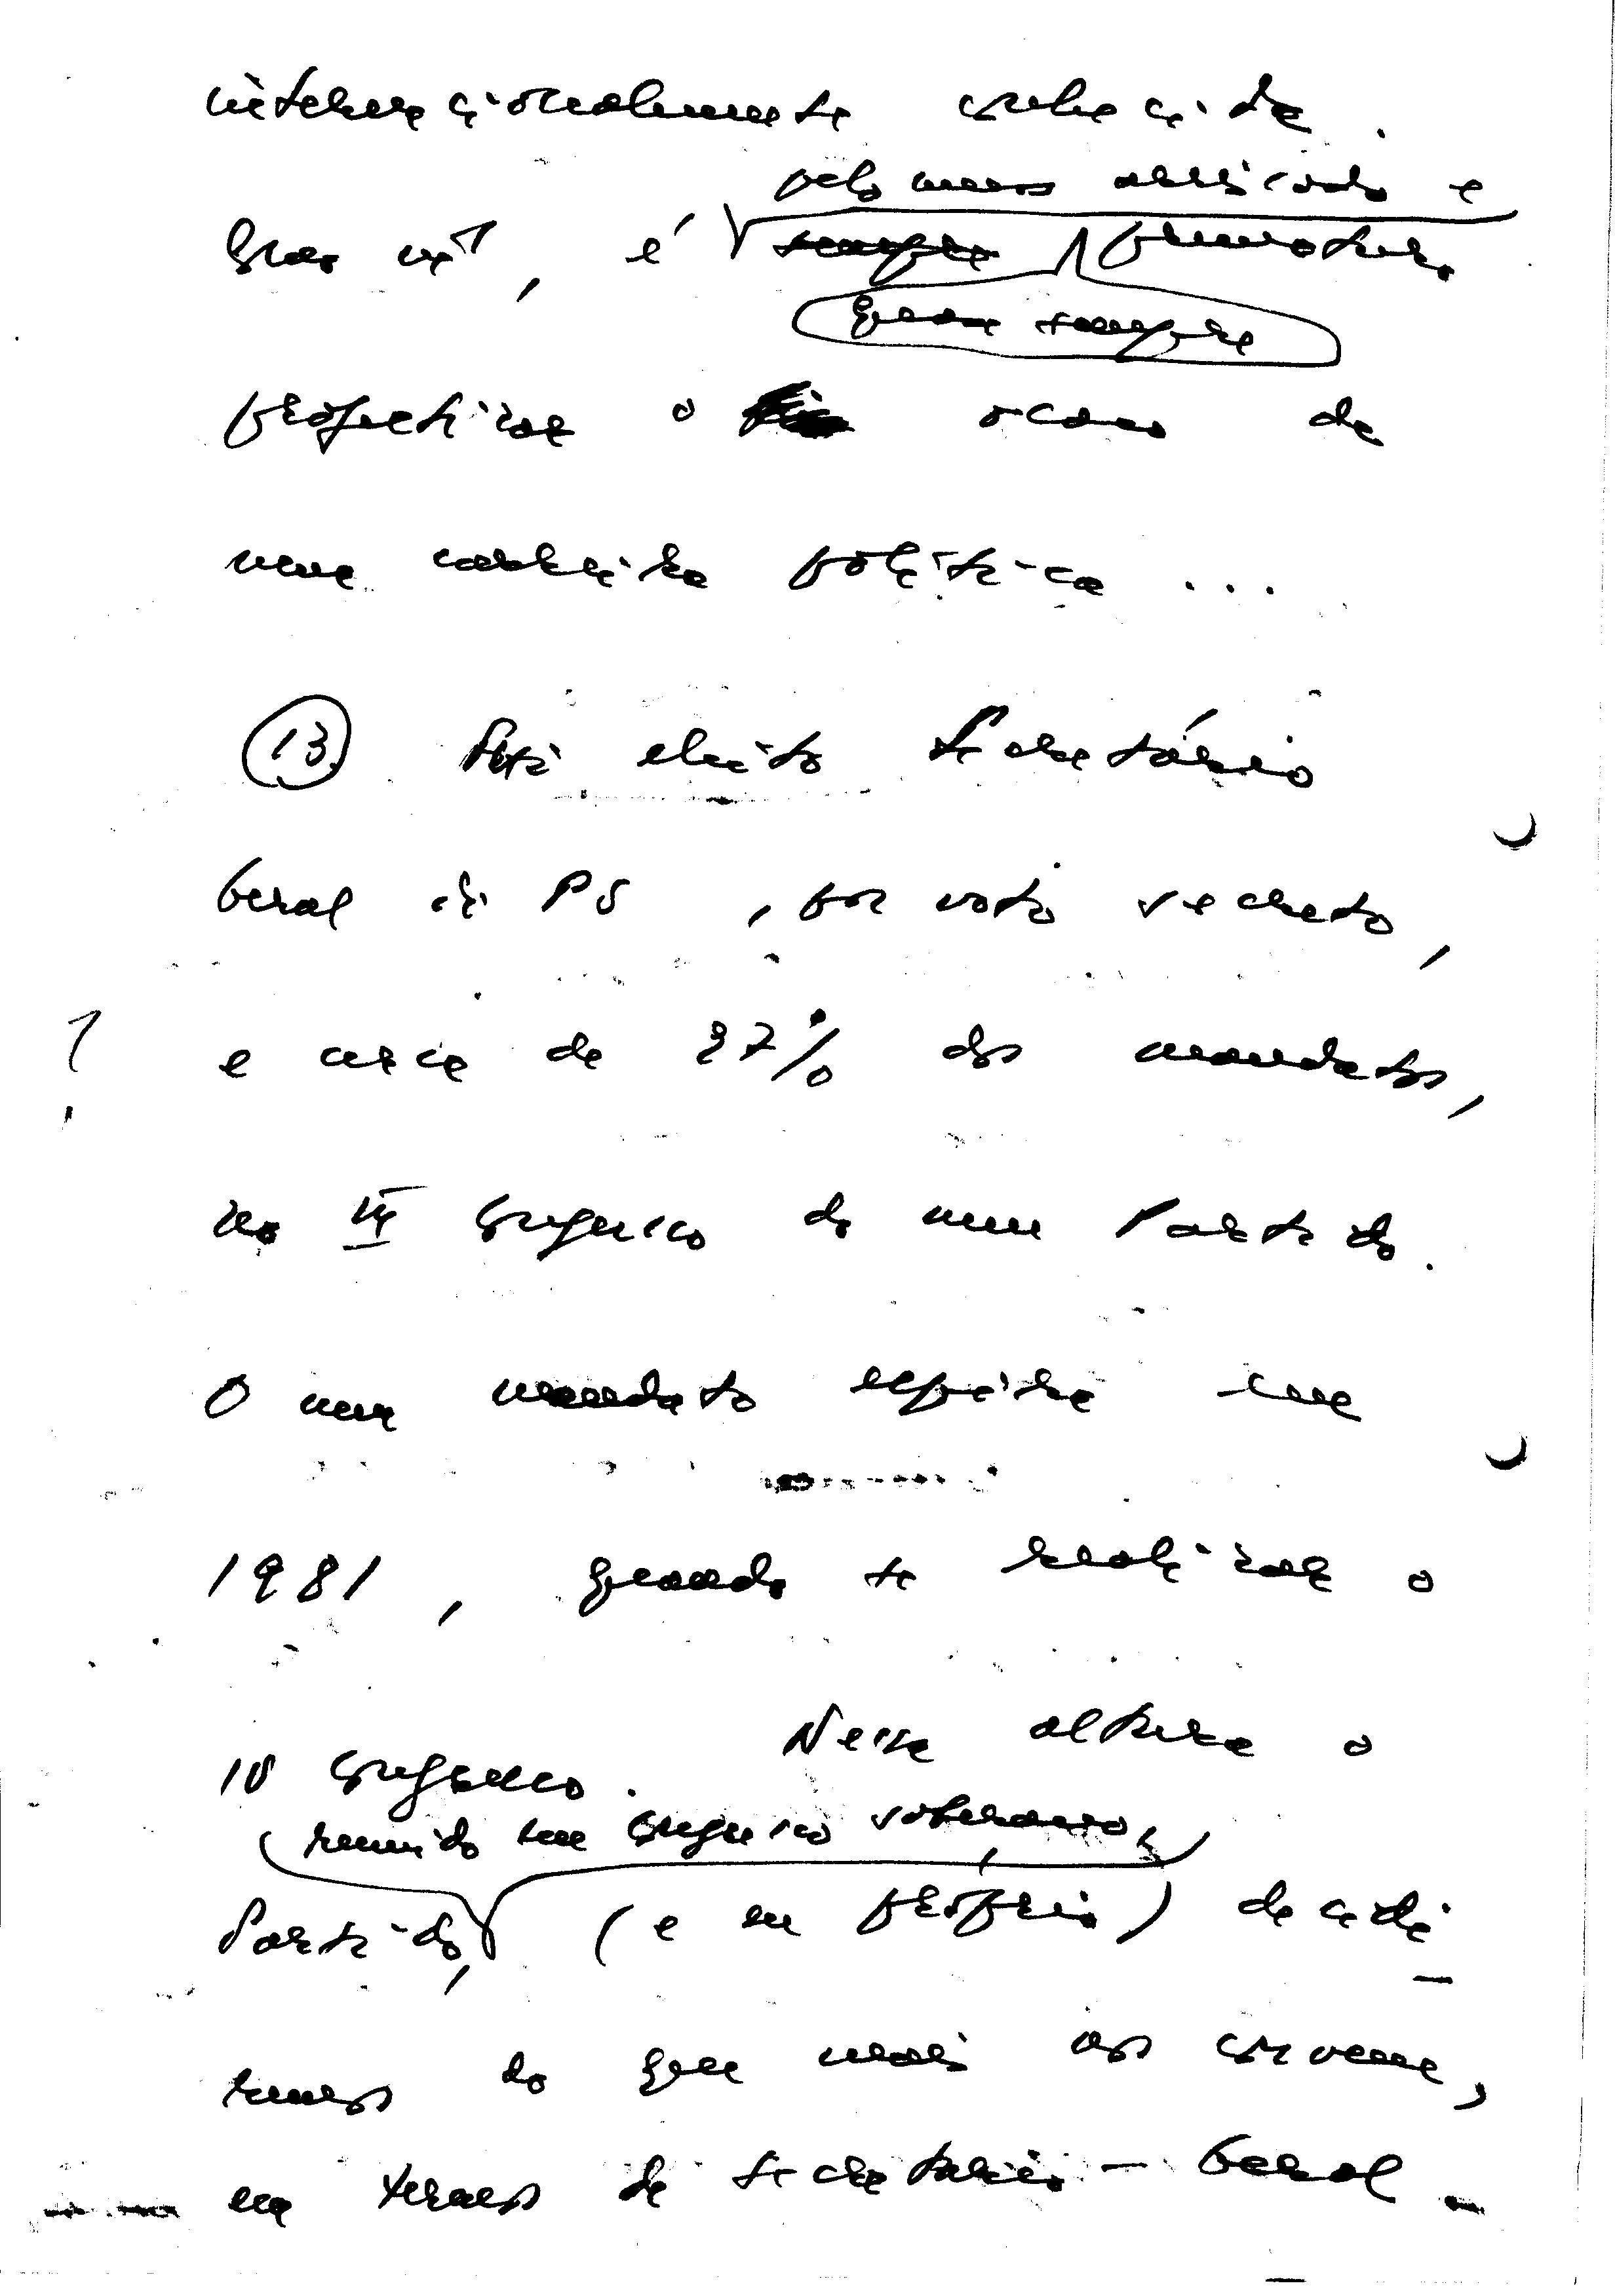 internacionalmente conhecida.
pelo menos arriscado e
Como vê, é sempre prematuro
quase sempre
profetizar o ocaso de
uma carreira política...
(13) Fui eleito Secretário
Geral do PS, por voto secreto,
? e cerca de 87% dos mandatos,
no III Congresso do meu Partido.
O meu mandato expira em
1981, quando se realizar o
IV Congresso. Nessa altura o
reunido em Congresso soberano,
Partido, (e eu próprio) decidi-
remos do que mais nos convem,
em termos de Secretário-Geral -